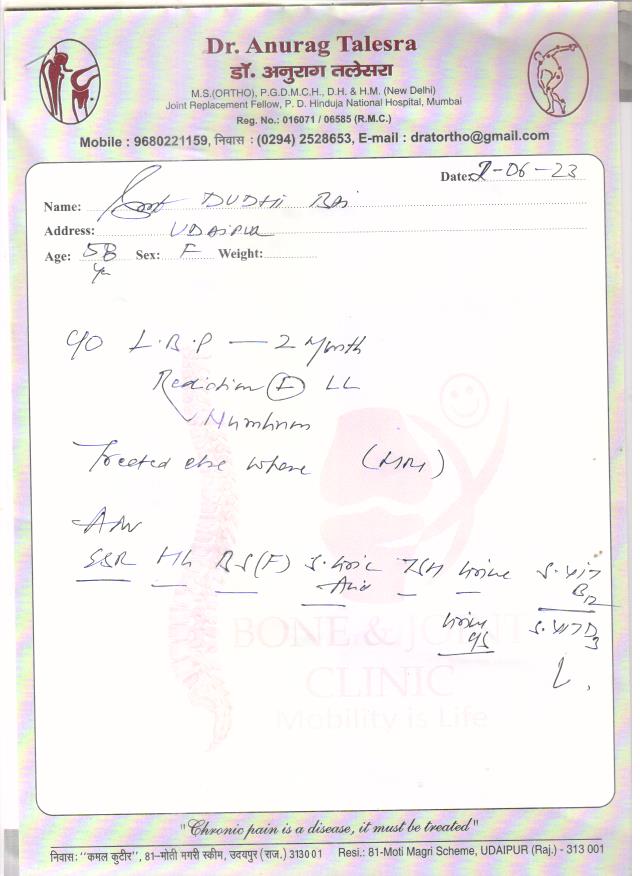 Dr. Anurag Talesra
डॉ. अनुराग तलेसरा
M.S.(ORTHO), P.G.D.M.C.H., D.H. & H.M. (New Delhi)
Joint Replacement Fellow, P. D. Hinduja National Hospital, Mumbai
Reg. No.: 016071 / 06585 (R.M.C.)
Mobile : 9680221159, निवास : (0294) 2528653, E-mail : dratortho@gmail.com
Date: -06-23
Name: DUDHI Bai
Address: UDAIPUR
Age: 58 yr Sex: F Weight:
C/O L.B.P - 2 Month
Radiation LL
Numbness
Treated else where (MRI)
Adv
ESR Hb BS(F) S. Uric Acid TSH Urine S. VIT B12
Urine S. VIT D3
BONE & JOINT
CLINIC
Mobility is Life
"Chronic pain is a disease, it must be treated"
निवास: "कमल कुटीर", 81-मोती मगरी स्कीम, उदयपुर (राज.) 313001 Resi.: 81-Moti Magri Scheme, UDAIPUR (Raj.) - 313 001